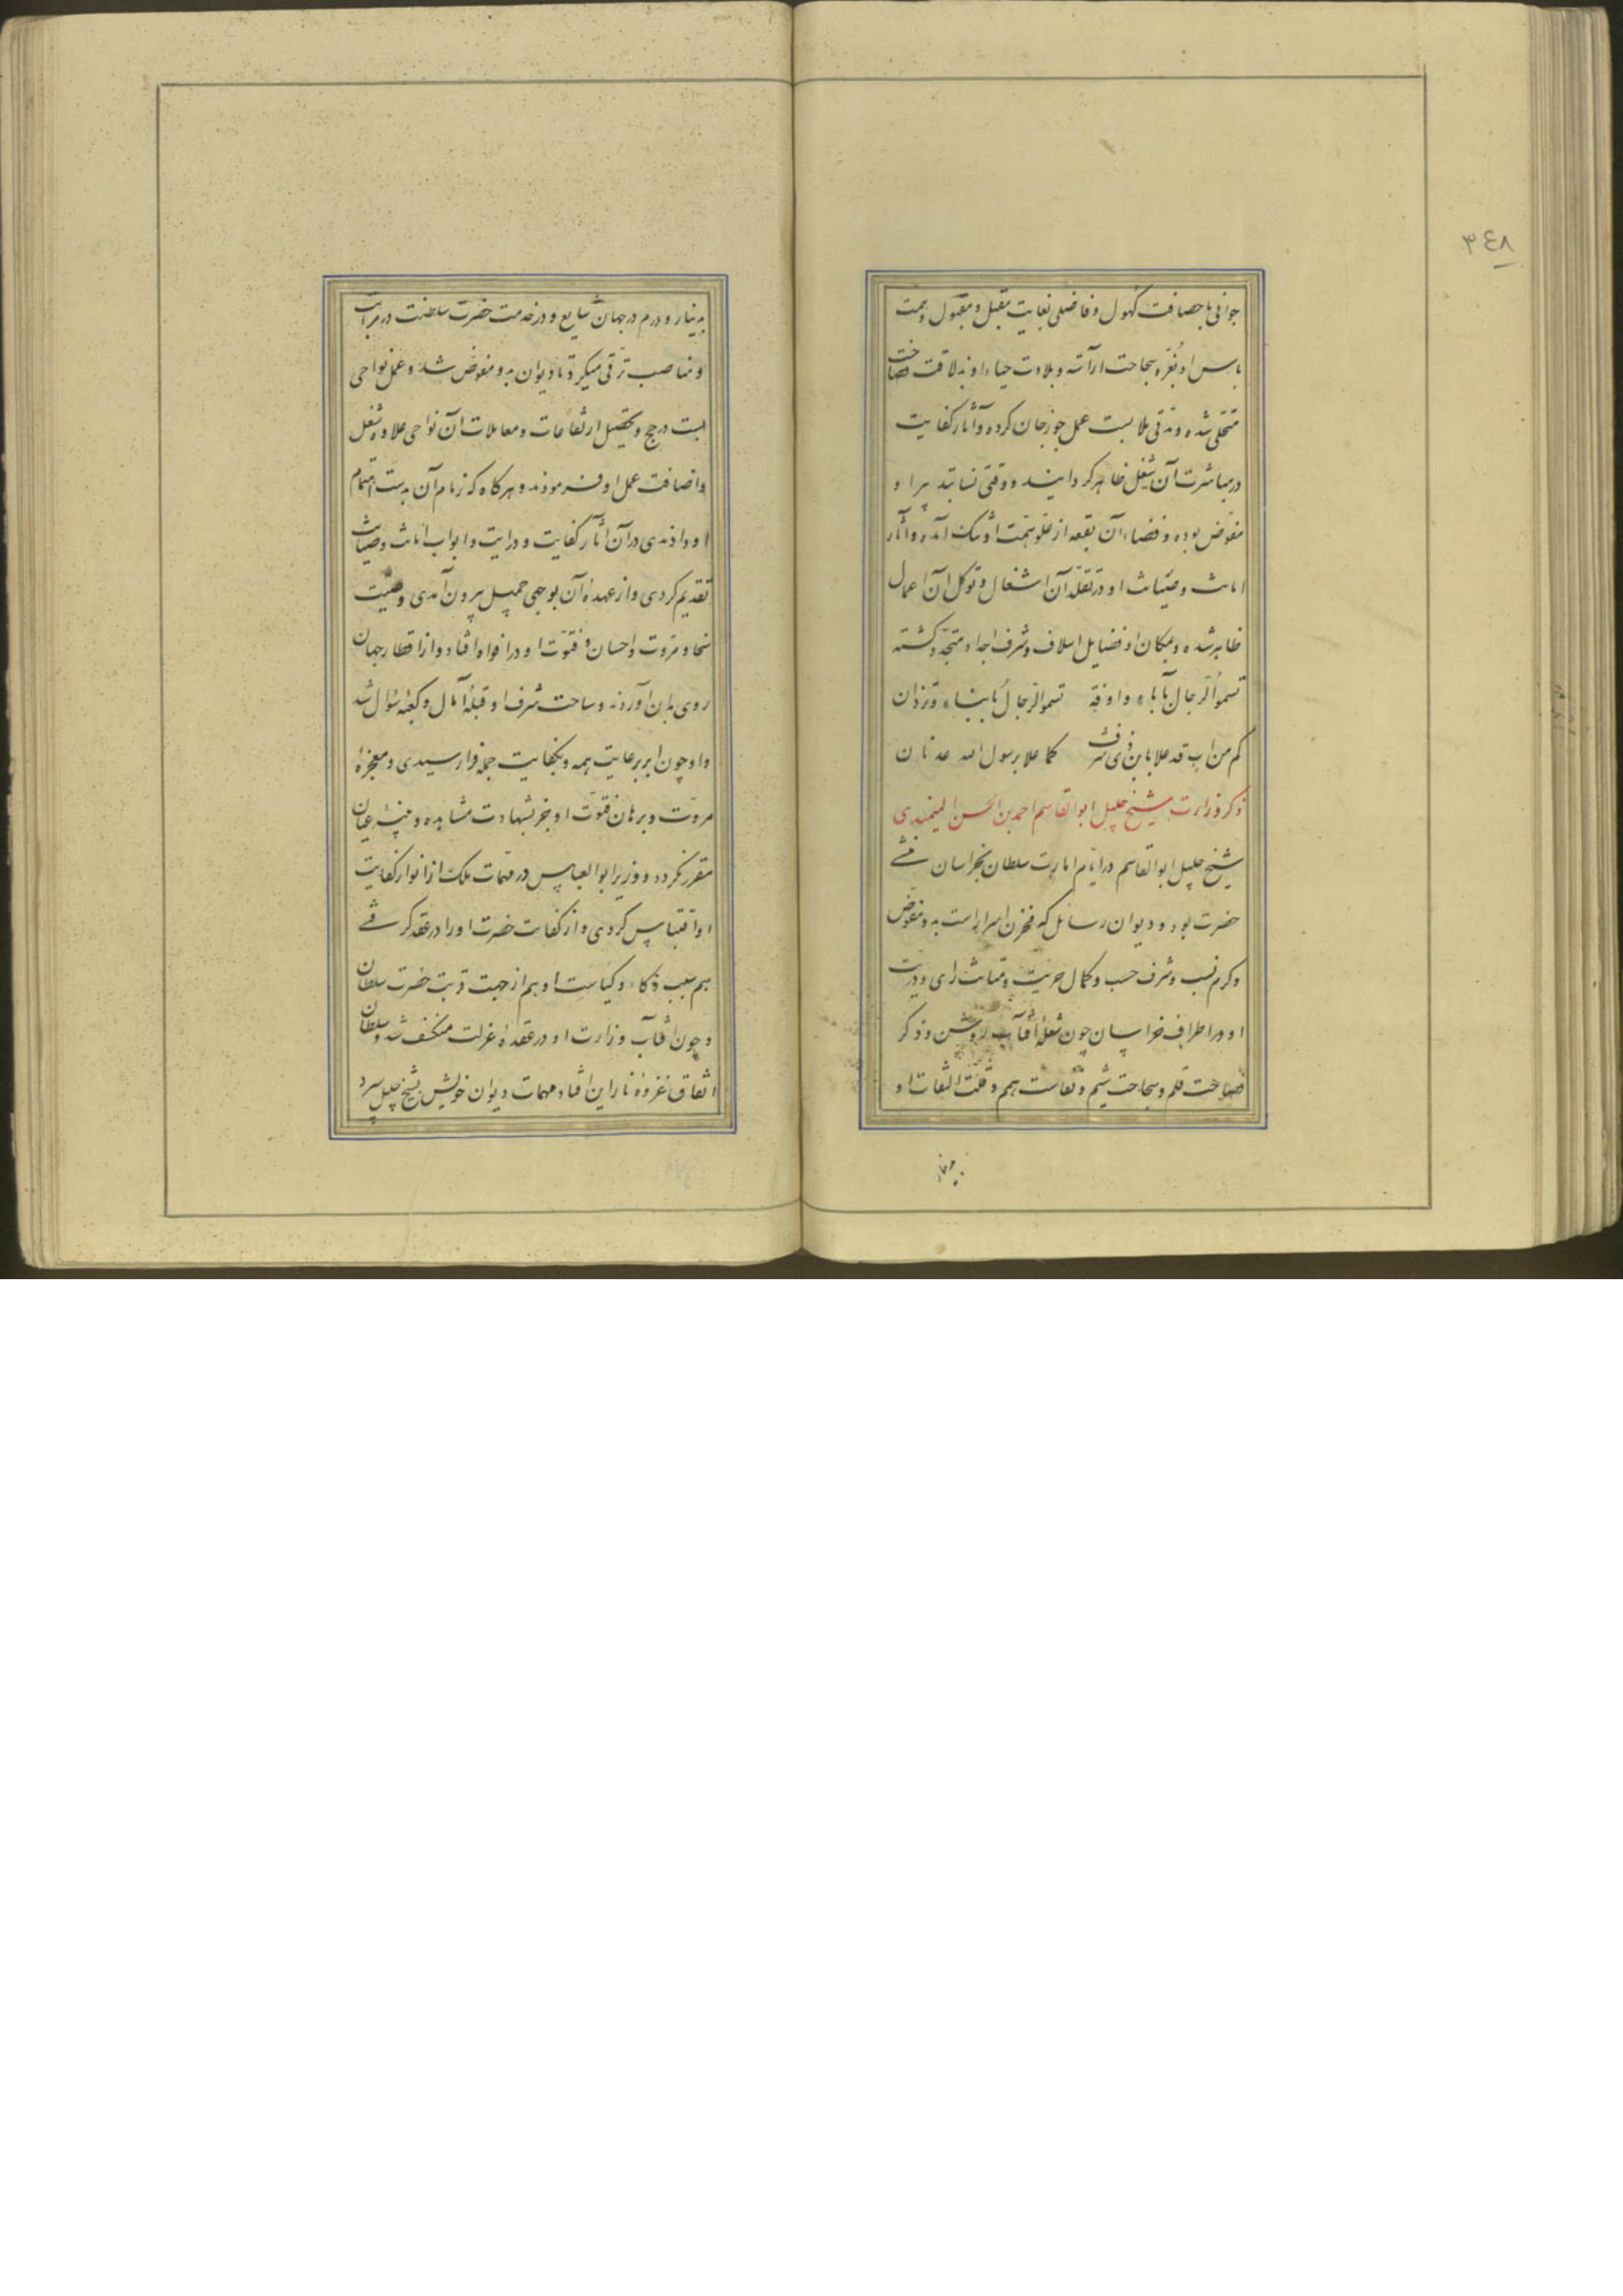 ٣٤٨
جوانی با حصافت کهول و فاضلی بغایت مقبل و مقبول و همت
باس او بغره سجاحت آراسته و بلادت حیاء او بذلاقت فصاحت
متحلی شده و مدتی ملابست عمل جوزجان کرده و آثار کفایت
در مباشرت آن شغل ظاهر گردانیده و وقتی نسا بتدبیر او
مفوض بوده و فضاء آن بقعه از علو همت او تنک آمده و آثار
امانت و صیانت او در تقلد آن اشغال و توکل آن اعمال
ظاهر شده و بمکان او فضایل اسلاف و شرف اجداد متجدد گشته
تسموا الرجال بآباء و اونة تسموا الرجال بابناء و تزدان
کم من اب قد علا بابن ذی شرف کما علا برسول الله عدنان
ذکر وزارت شیخ جلیل ابو القاسم احمد بن الحسن المیمندی
شیخ جلیل ابو القاسم در ایام امارت سلطان بخراسان منشی
حضرت بود و دیوان رسائل که مخزن اسرار است بدو مفوض
و کرم نسب و شرف حسب و کمال حریت و متانت رای و دربت
او در اطراف خراسان چون شعلهٔ آفتاب روشن و ذکر
فصاحت قلم و سجاحت شیم و نفاست همم و قلت التفات او
بدینار
بدینار و درم در جهان شایع و در خدمت حضرت سلطنت در مراتب
و مناصب ترقی میکرد تا دیوان بدو مفوض شد و عمل نواحی
بست و رخج و تحصیل ارتفاعات و معاملات آن نواحی علاوه شغل
و اضافت عمل او فرمودند و هر کاه که زمام آن بدست اهتمام
او دادندی در آن آثار کفایت و درایت و ابواب امانت و صیانت
تقدیم کردی و از عهده آن بوجهی جمیل بیرون آمدی و صیت
سخا و مروت و احسان و فتوت او در افواه افتاد و از اقطار جهان
روی بدان آوردند و ساحت شرف او قبلهٔ آمال و کعبه سؤال شد
و او چون ابر برعایت همه و بکفایت جمله فرا رسیدی و معجزهٔ
مروت و برهان فتوت او بجز بشهادت مشاهده و بینه عیان
مقرر نکردد و وزیر ابو العباس در مهمات ملک از انوار کفایت
او اقتباس کردی و از کفات حضرت او را در عقد گرفتی
هم بسبب ذکاء و کیاست او هم از جهت قربت حضرت سلطان
و چون آفتاب وزارت او در عقدهٔ عزلت منکسف شد و سلطان
اتفاق غزوهٔ نارین افتاد مهمات دیوان خویش بشیخ جلیل سپرد